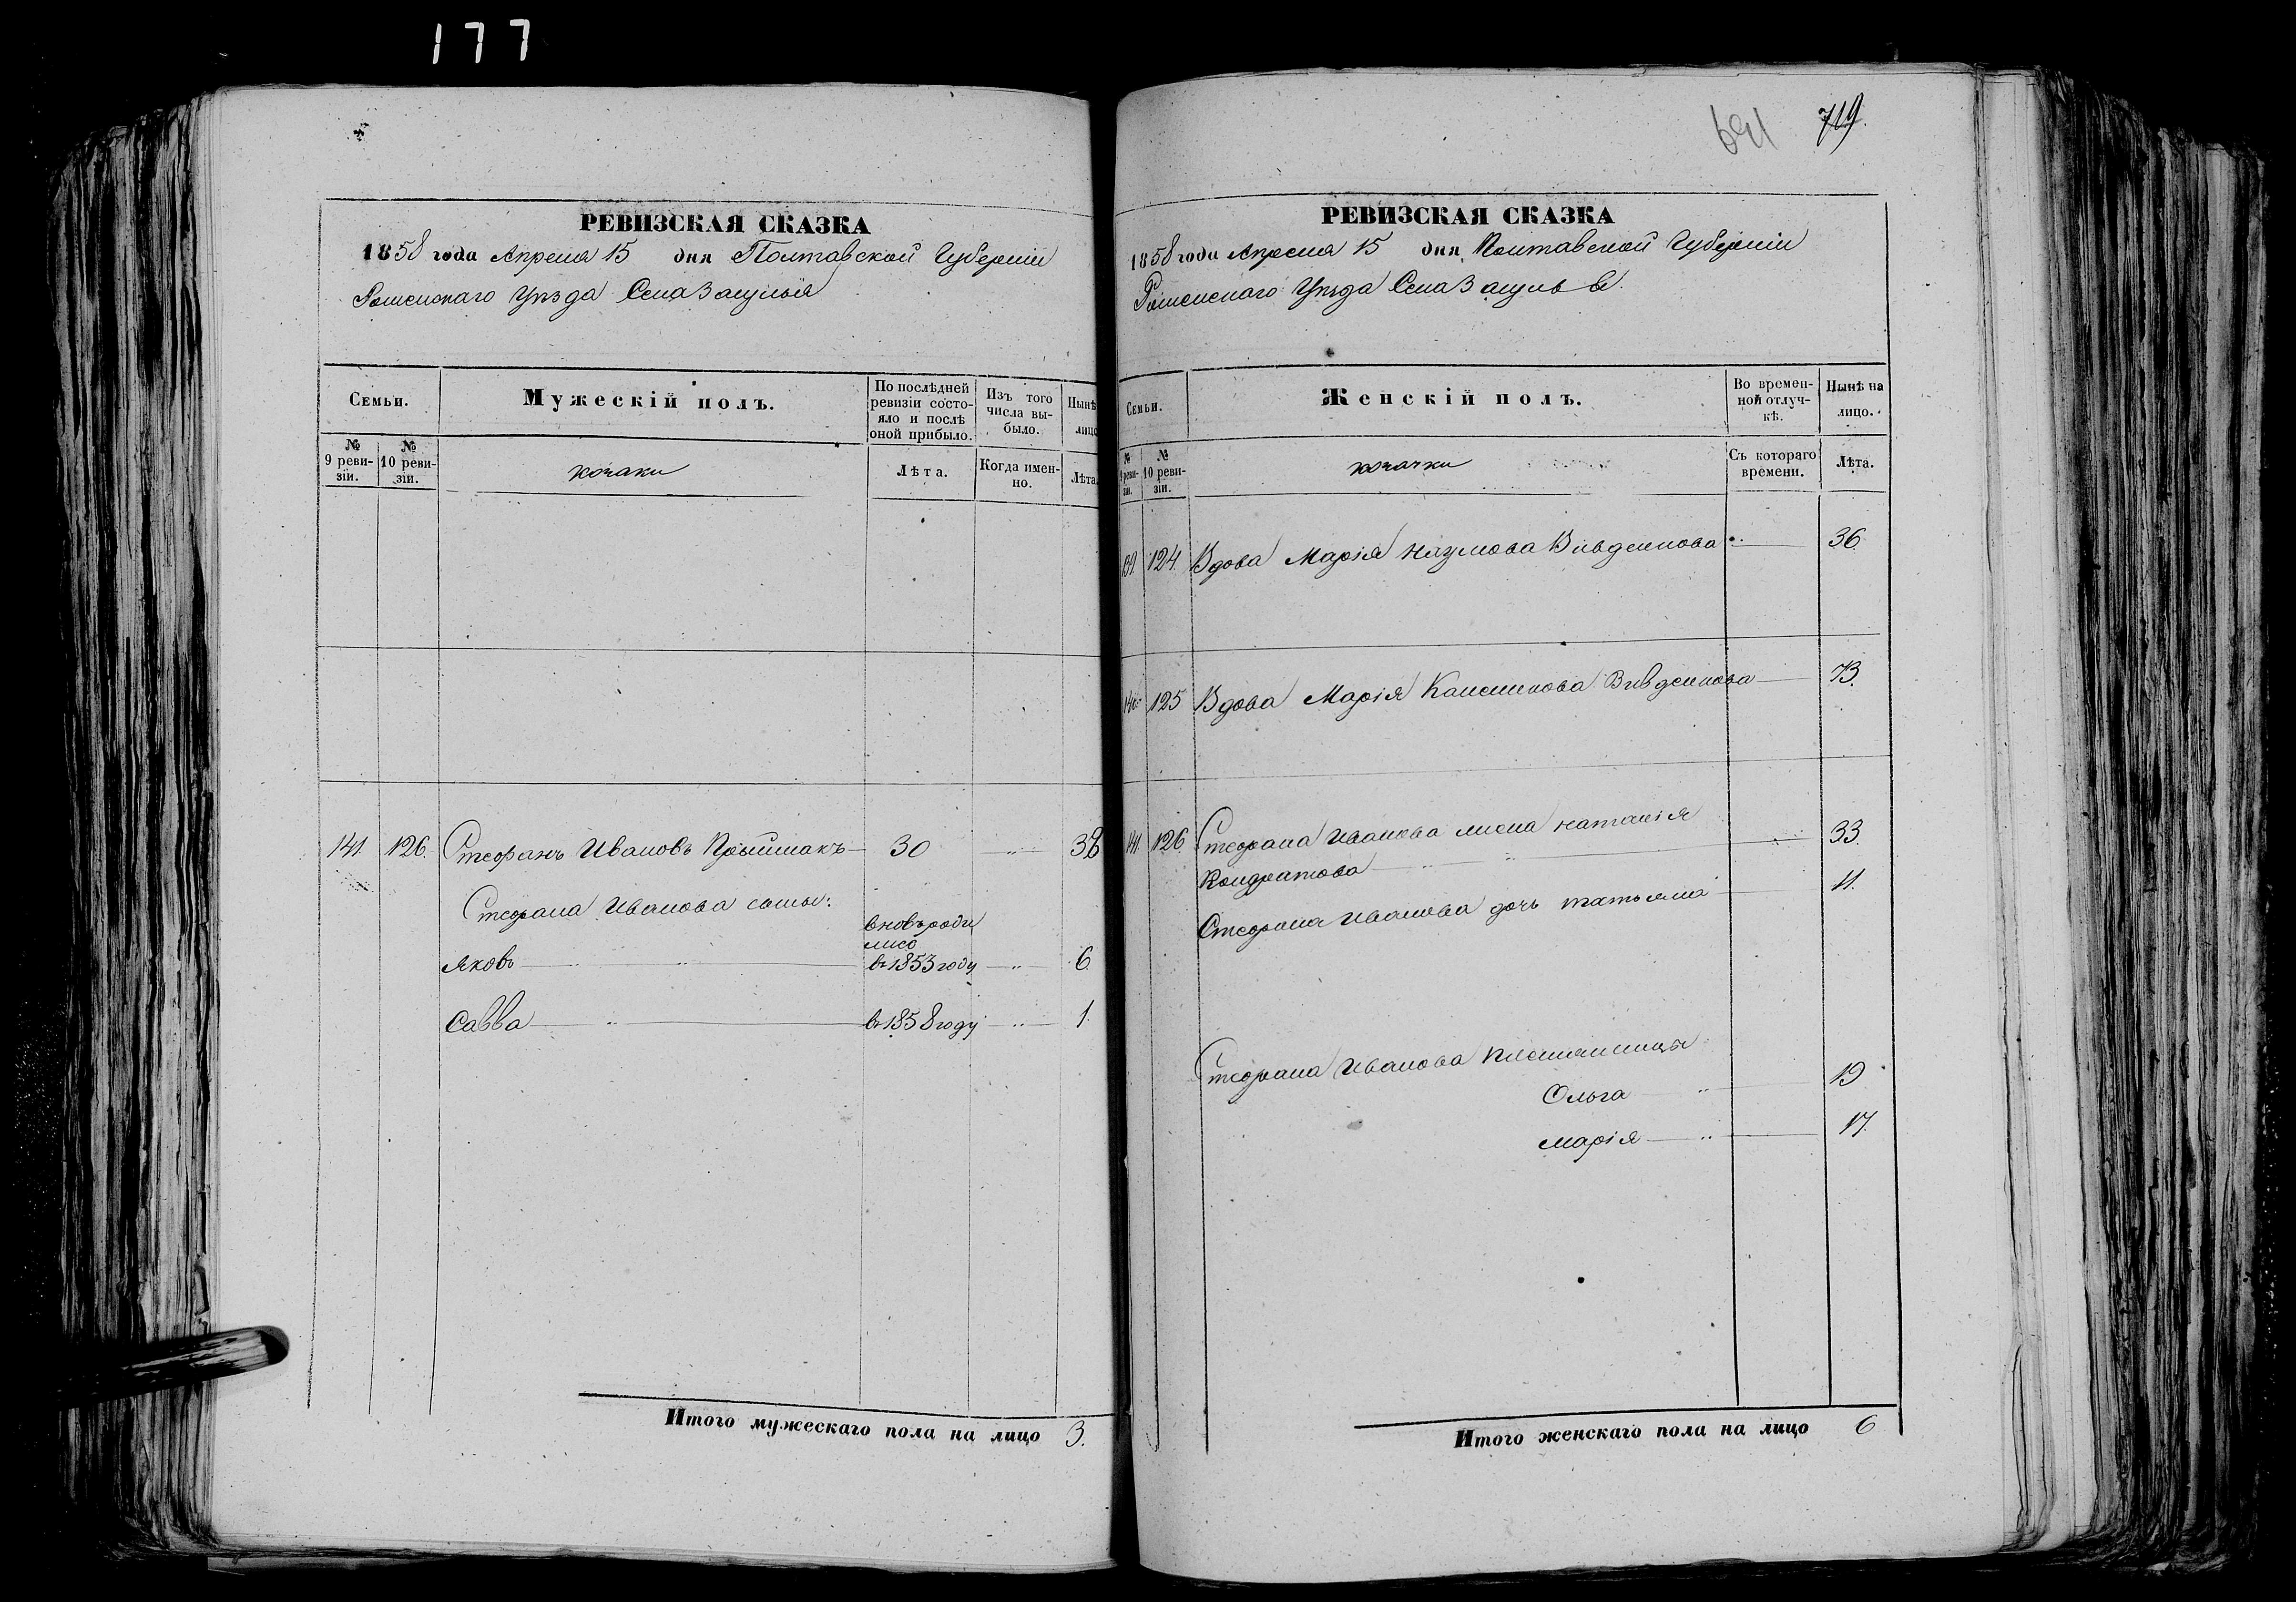 177
РЕВИЗСКАЯ СКАЗКА
1858 года Апреля 15 дня Полтавской Губерніи
Роменскаго Уѣзда Села Засулья
Семьи.
Мужескій полъ.
По послѣдней ревизіи состояло и послѣ оной прибыло.
Изъ того числа выбыло.
Нынѣ лицо
№ 9 ревизіи.
№ 10 ревизіи.
козаки
Лѣта.
Когда именно.
Лѣта.
141. 126. Стефанъ Ивановъ Прыймакъ 30 38
Стефана Иванова сыны:
вновь роди
лись
Яковъ въ 1853 году 6.
Савва въ 1858 году 1.
Итого мужескаго пола на лицо 3.
691 719.
РЕВИЗСКАЯ СКАЗКА
1858 года Апреля 15 дня Полтавской Губерніи
Роменскаго Уѣзда Села Засулья
Семьи.
Женскій полъ.
Во временной отлучкѣ.
Нынѣ на лицо.
№ 9 ревизіи.
№ 10 ревизіи.
козачки
Съ котораго времени.
Лѣта.
139 124. Вдова Марія Наумова 36.
140 125 Вдова Марія 73.
141. 126 Стефана Иванова жена Наталія 33.
Кондратова
Стефана Иванова дочь Татьяна 11.
Стефана Иванова племянницы
Ольга 19
Марія 17.
Итого женскаго пола на лицо 6